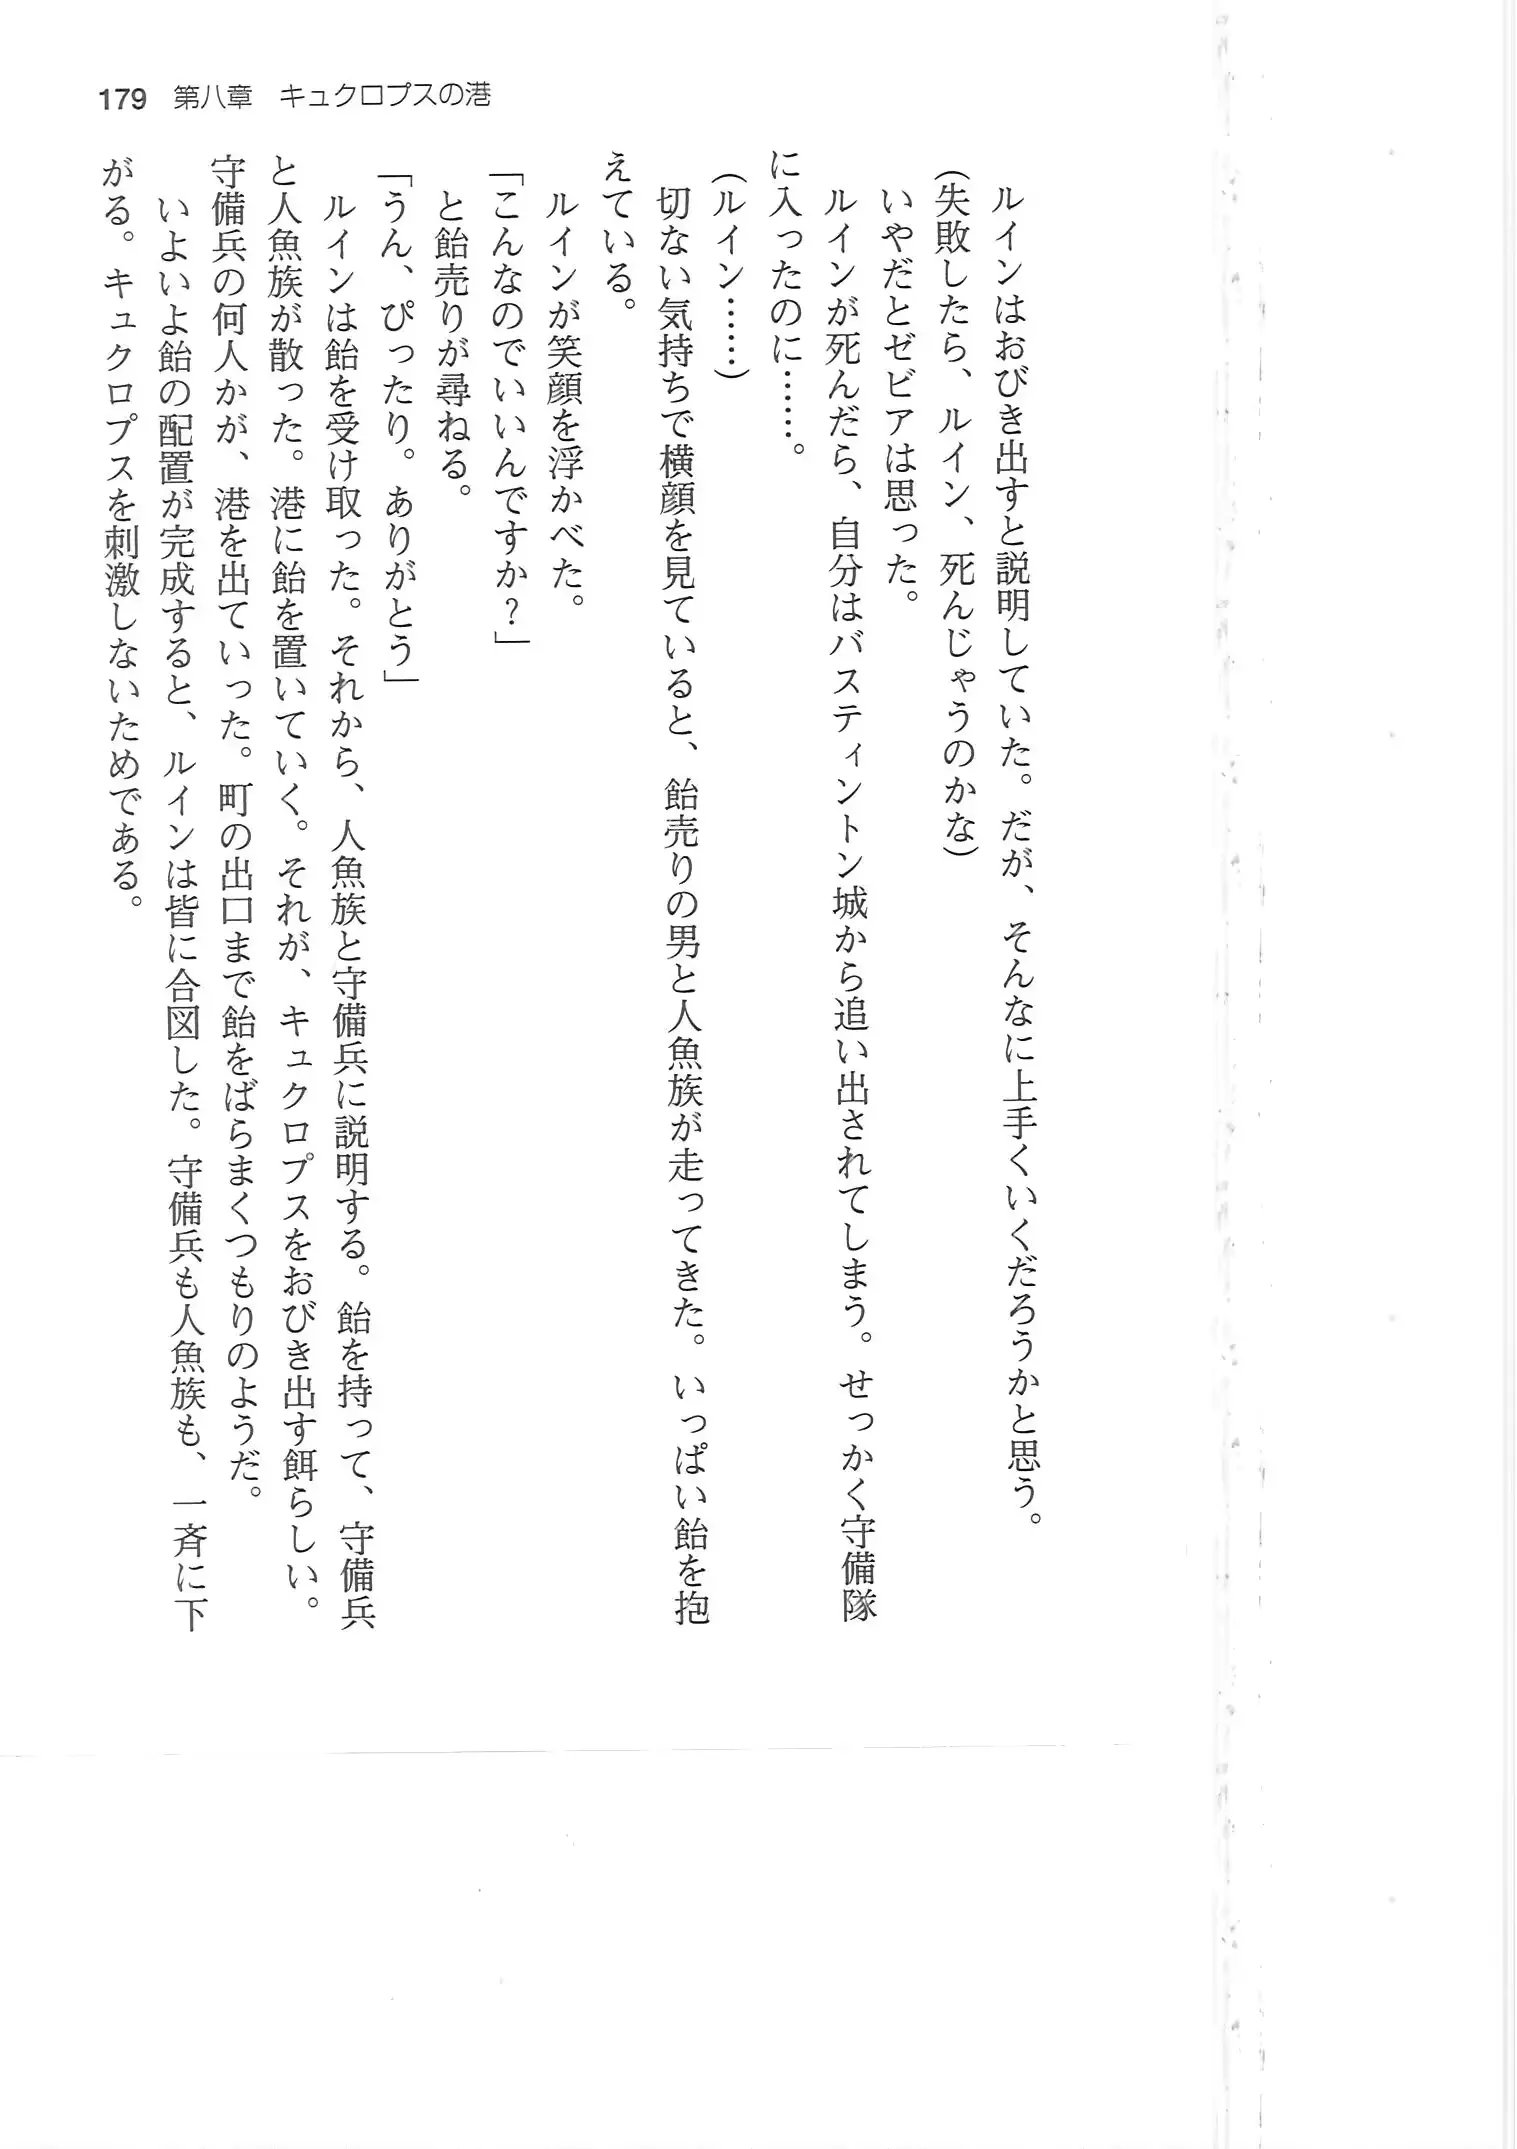 179 第八章 キュクロプスの港
ルインはおびき出すと説明していた。だが、そんなに上手くいくだろうかと思う。
(失敗したら、ルイン、死んじゃうのかな)
いやだとゼビアは思った。
ルインが死んだら、自分はバスティントン城から追い出されてしまう。せっかく守備隊
に入ったのに……。
(ルイン……)
切ない気持ちで横顔を見ていると、飴売りの男と人魚族が走ってきた。いっぱい飴を抱
えている。
ルインが笑顔を浮かべた。
「こんなのでいいんですか?」
と飴売りが尋ねる。
「うん、ぴったり。ありがとう」
ルインは飴を受け取った。それから、人魚族と守備兵に説明する。飴を持って、守備兵
と人魚族が散った。港に飴を置いていく。それが、キュクロプスをおびき出す餌らしい。
守備兵の何人かが、港を出ていった。町の出口まで飴をばらまくつもりのようだ。
いよいよ飴の配置が完成すると、ルインは皆に合図した。守備兵も人魚族も、一斉に下
がる。キュクロプスを刺激しないためである。